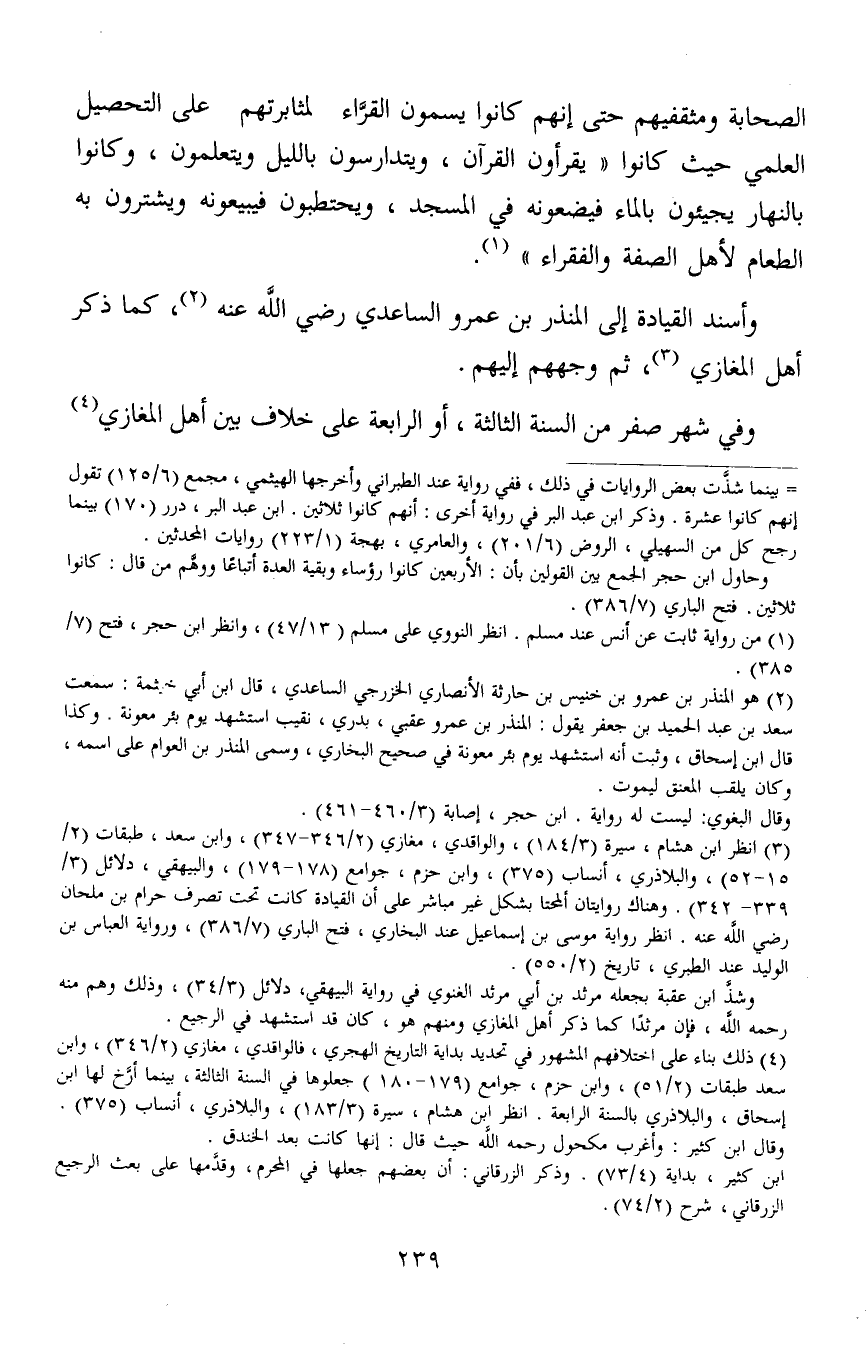 الصحابة ومثقفيهم حتى إنهم كانوا يسمون القرَّاء لمثابرتهم على التحصيل
العلمي حيث كانوا « يقرأون القرآن ، ويتدارسون بالليل ويتعلمون ، وكانوا
بالنهار يجيئون بالماء فيضعونه في المسجد ، ويحتطبون فيبيعونه ويشترون به
الطعام لأهل الصفة والفقراء » (١).
وأسند القيادة إلى المنذر بن عمرو الساعدي رضي اللَّه عنه (٢)، كما ذكر
أهل المغازي (٣)، ثم وجههم إليهم .
وفي شهر صفر من السنة الثالثة ، أو الرابعة على خلاف بين أهل المغازي(٤)
= بينما شذَّت بعض الروايات في ذلك ، ففي رواية عند الطبراني وأخرجها الهيثمي ، مجمع (١٢٥/٦) تقول
إنهم كانوا عشرة . وذكر ابن عبد البر في رواية أخرى : أنهم كانوا ثلاثين . ابن عبد البر ، درر (١٧٠) بينما
رجح كل من السهيلي ، الروض (٢٠١/٦) ، والعامري ، بهجة (٢٢٣/١) روايات المحدثين .
وحاول ابن حجر الجمع بين القولين بأن : الأربعين كانوا رؤساء وبقية العدة أتباعًا ووهَّم من قال : كانوا
ثلاثين . فتح الباري (٣٨٦/٧) .
(١) من رواية ثابت عن أنس عند مسلم . انظر النووي على مسلم ( ٤٧/١٣) ، وانظر ابن حجر ، فتح (٧/
٣٨٥) .
(٢) هو المنذر بن عمرو بن خنيس بن حارثة الأنصاري الخزرجي الساعدي ، قال ابن أبي خيثمة : سمعت
سعد بن عبد الحميد بن جعفر يقول : المنذر بن عمرو عقبي ، بدري ، نقيب استشهد يوم بئر معونة . وكذا
قال ابن إسحاق ، وثبت أنه استشهد يوم بئر معونة في صحيح البخاري ، وسمى المنذر بن العوام على اسمه ،
وكان يلقب المعنق ليموت .
وقال البغوي: ليست له رواية . ابن حجر ، إصابة (٤٦٠/٣-٤٦١) .
(٣) انظر ابن هشام ، سيرة (١٨٤/٣) ، والواقدي ، مغازي (٣٤٦/٢-٣٤٧) ، وابن سعد ، طبقات (٢/
١٥-٥٢) ، والبلاذري ، أنساب (٣٧٥) ، وابن حزم ، جوامع (١٧٨-١٧٩) ، والبيهقي ، دلائل (٣/
٣٣٩- ٣٤٢) . وهناك روايتان ألمحتا بشكل غير مباشر على أن القيادة كانت تحت تصرف حرام بن ملحان
رضي اللَّه عنه . انظر رواية موسى بن إسماعيل عند البخاري ، فتح الباري (٣٨٦/٧) ، ورواية العباس بن
الوليد عند الطبري ، تاريخ (٥٥٠/٢) .
وشذَّ ابن عقبة بجعله مرثد بن أبي مرثد الغنوي في رواية البيهقي، دلائل (٣٤/٣) ، وذلك وهم منه
رحمه اللَّه ، فإن مرثدًا كما ذكر أهل المغازي ومنهم هو ، كان قد استشهد في الرجيع .
(٤) ذلك بناء على اختلافهم المشهور في تحديد بداية التاريخ الهجري ، فالواقدي ، مغازي (٣٤٦/٢) ، وابن
سعد طبقات (٥١/٢) ، وابن حزم ، جوامع (١٧٩-١٨٠ ) جعلوها في السنة الثالثة ، بينما أرَّخ لها ابن
إسحاق ، والبلاذري بالسنة الرابعة . انظر ابن هشام ، سيرة (١٨٣/٣) ، والبلاذري ، أنساب (٣٧٥) .
وقال ابن كثير : وأغرب مكحول رحمه اللَّه حيث قال : إنها كانت بعد الخندق .
ابن كثير ، بداية (٧٣/٤) . وذكر الزرقاني : أن بعضهم جعلها في المحرم ، وقدَّمها على بعث الرجيع
الزرقاني ، شرح (٧٤/٢).
٢٣٩